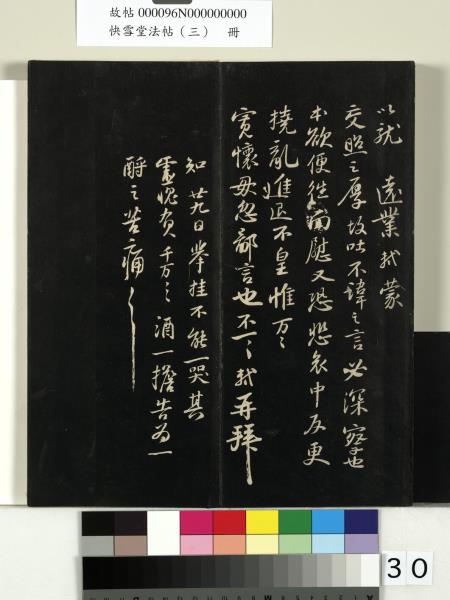 故帖 000096N000000000
快雪堂法帖（三） 冊
以就　遠業軾蒙
交照之厚故吐不諱之言必深察也
本欲便往面慰又恐悲哀中反更
撓亂進退不皇惟万万
寬懷毋忽鄙言也不一一軾再拜
知廿九日舉挂不能一哭其
靈愧負千万千万酒一擔告為一
酹之苦痛苦痛
30